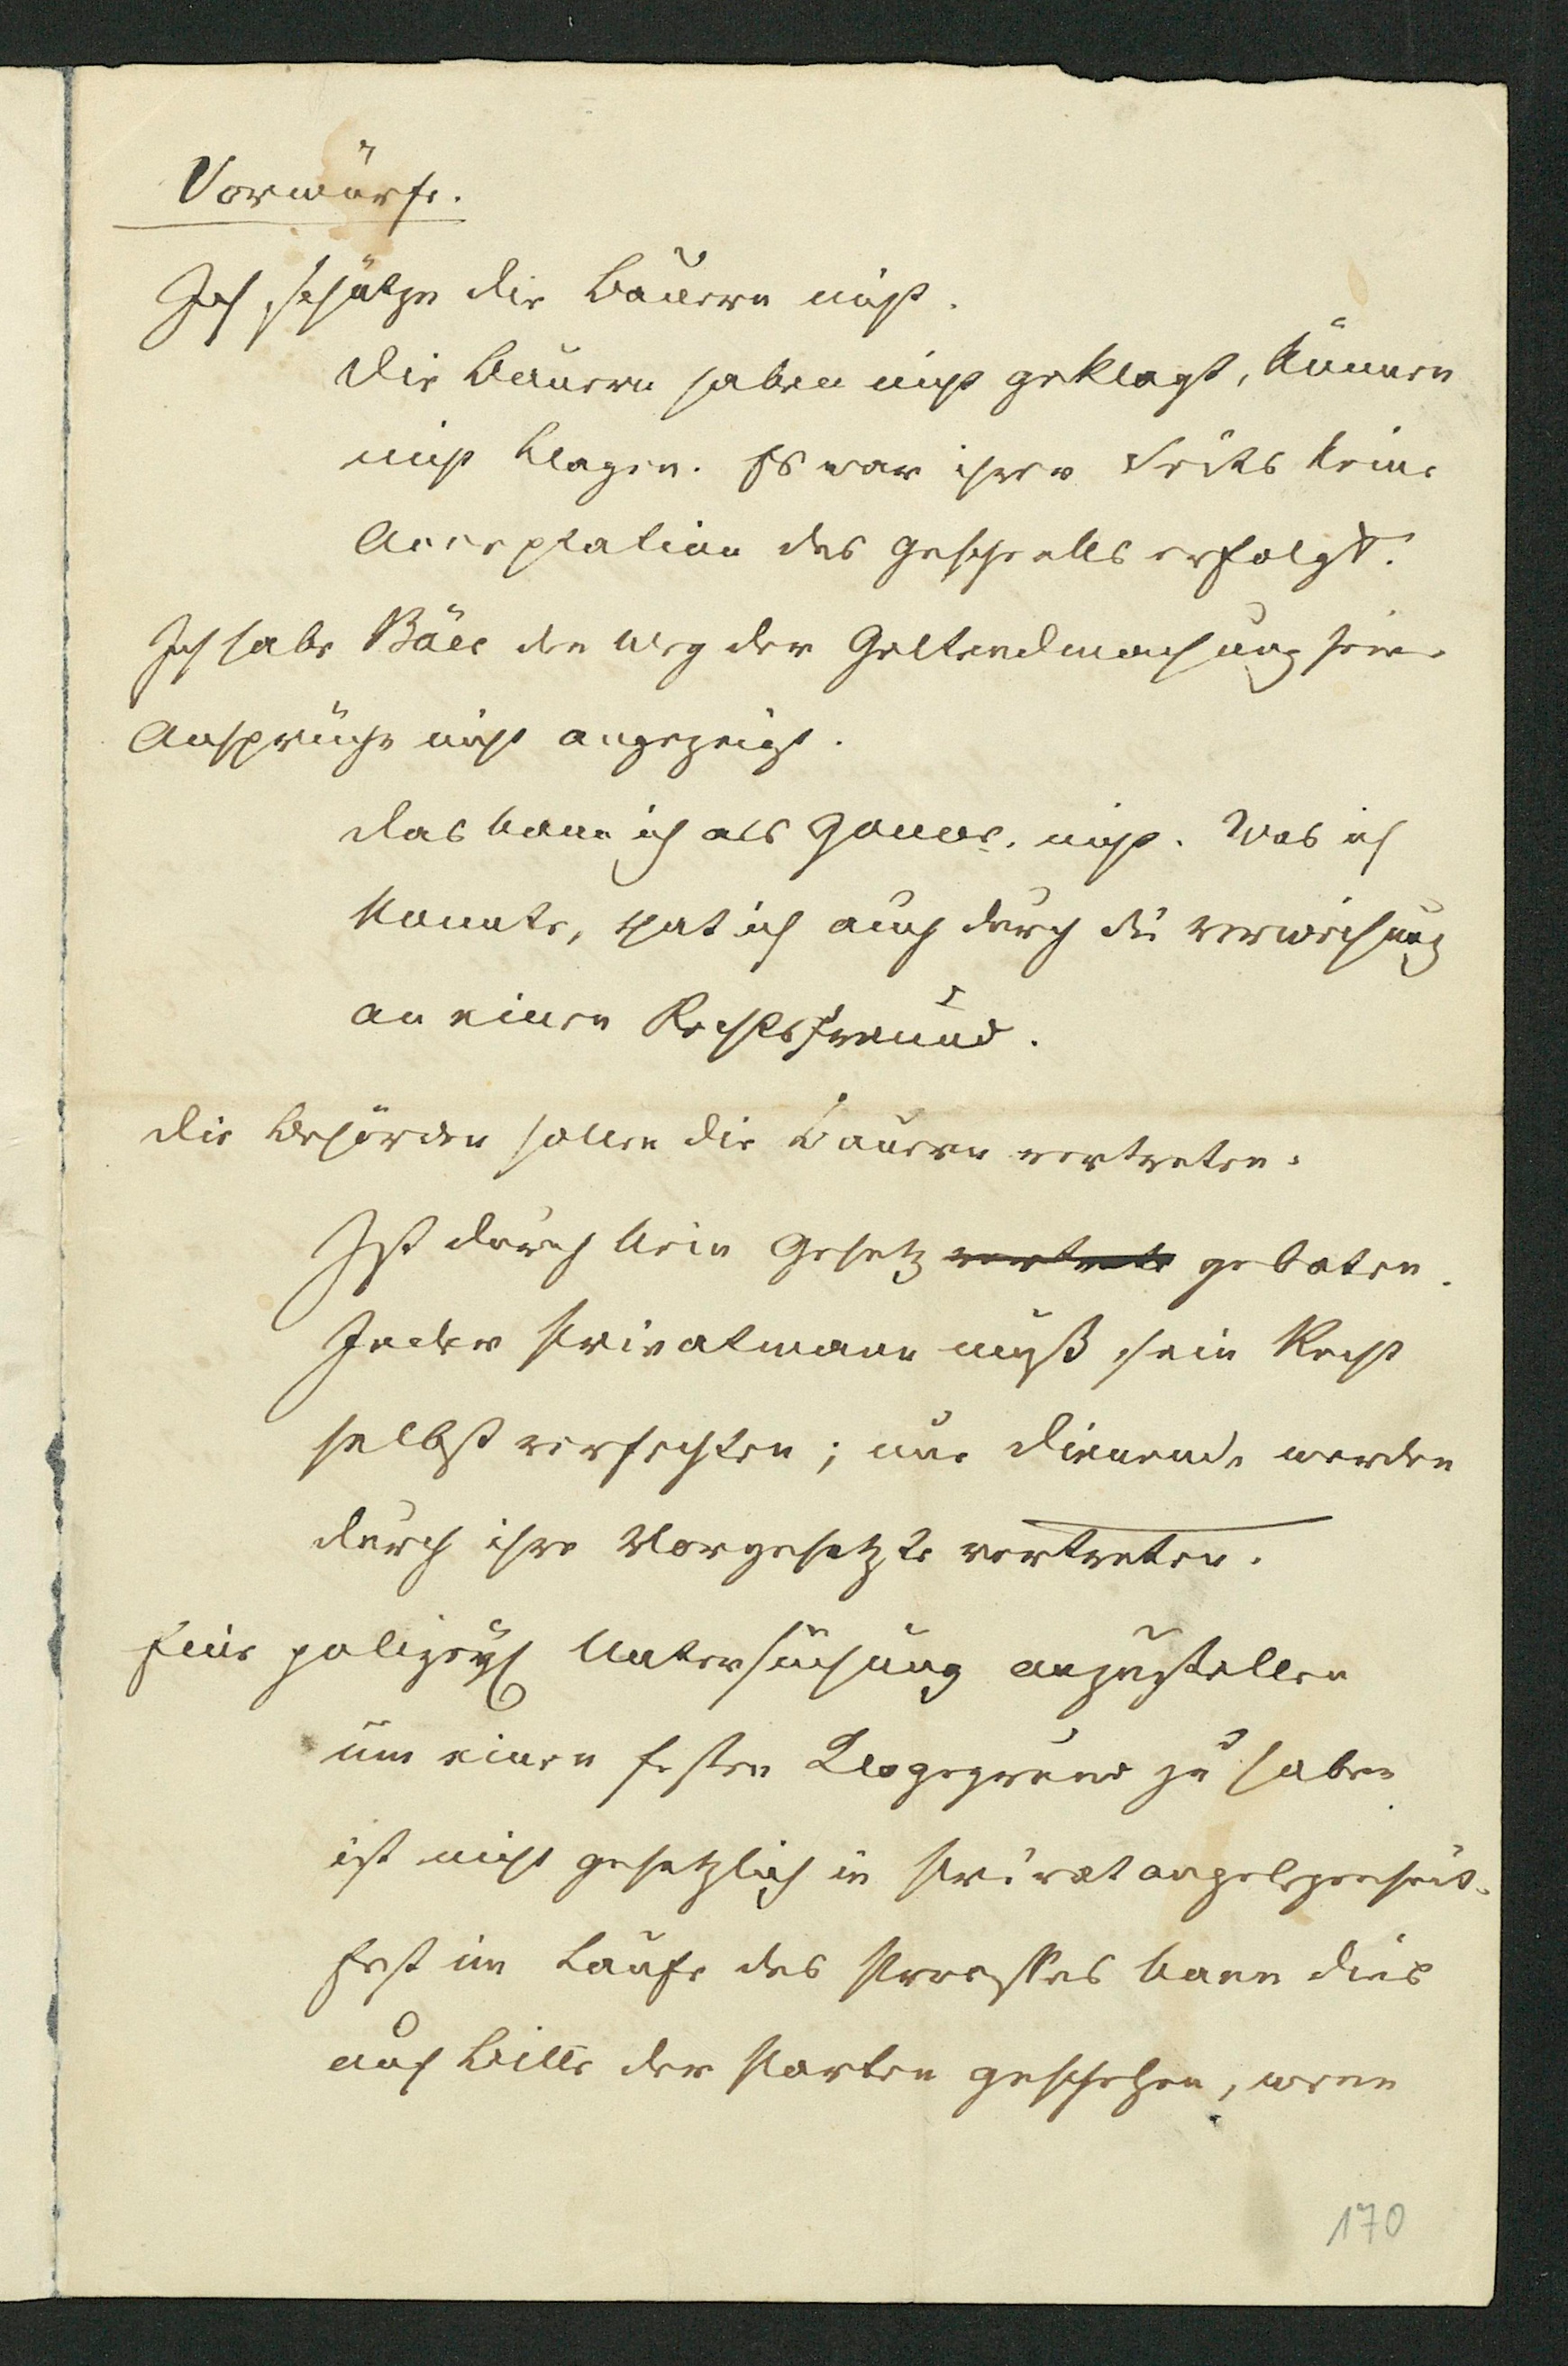 Vorwürfe.
Ich schütze die Bauern nicht.
Die Bauern haben nicht geklagt, können
nicht klagen. Es war ihrer Seits keine
Acceptation des Geschenks erfolgt.
Ich habe Bäer den Weg der Geltendmachung seiner
Ansprüche nicht angezeigt.
Das kann ich als Gouver. nicht. Was ich
konnte, that ich auch durch die Verweisung
an einen Rechtsfreund.
Die Behörden sollen die Bauern vertreten.
Ist durch kein Gesetz vertrete geboten.
Jeder Privatmann muß sein Recht
selbst verfechten; nur Dienende werden
durch ihre Vorgesetzte vertreten.
Eine polizeyl Untersuchung anzustellen
um einen festen Klagegrund zu haben
ist nicht gesetzlich in Privatangelegenheit.
Erst im Laufe des Processes kann dies
auf Bitte der Parten geschehen, wenn
170